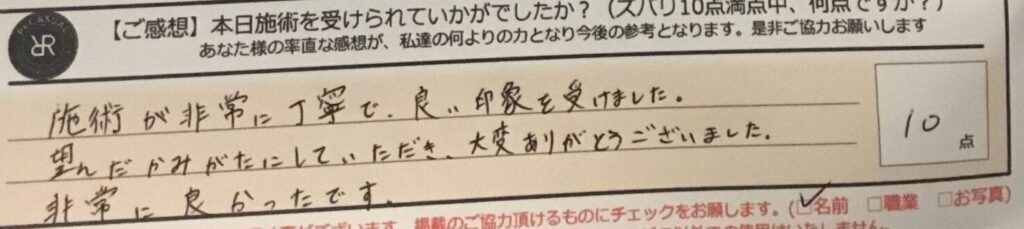 【ご感想】本日施術を受けられていかがでしたか？（ズバリ10点満点中、何点ですか？）
あなた様の率直な感想が、私達の何よりの力となり今後の参考となります。是非ご協力お願いします
CASUAL
施術が非常に丁寧で、良い印象を受けました。
望んだかみがたにしていただき、大変ありがとうございました。
非常に良かったです。
10点
掲載のご協力頂けるものにチェックをお願します。(☑名前 □職業 □お写真)